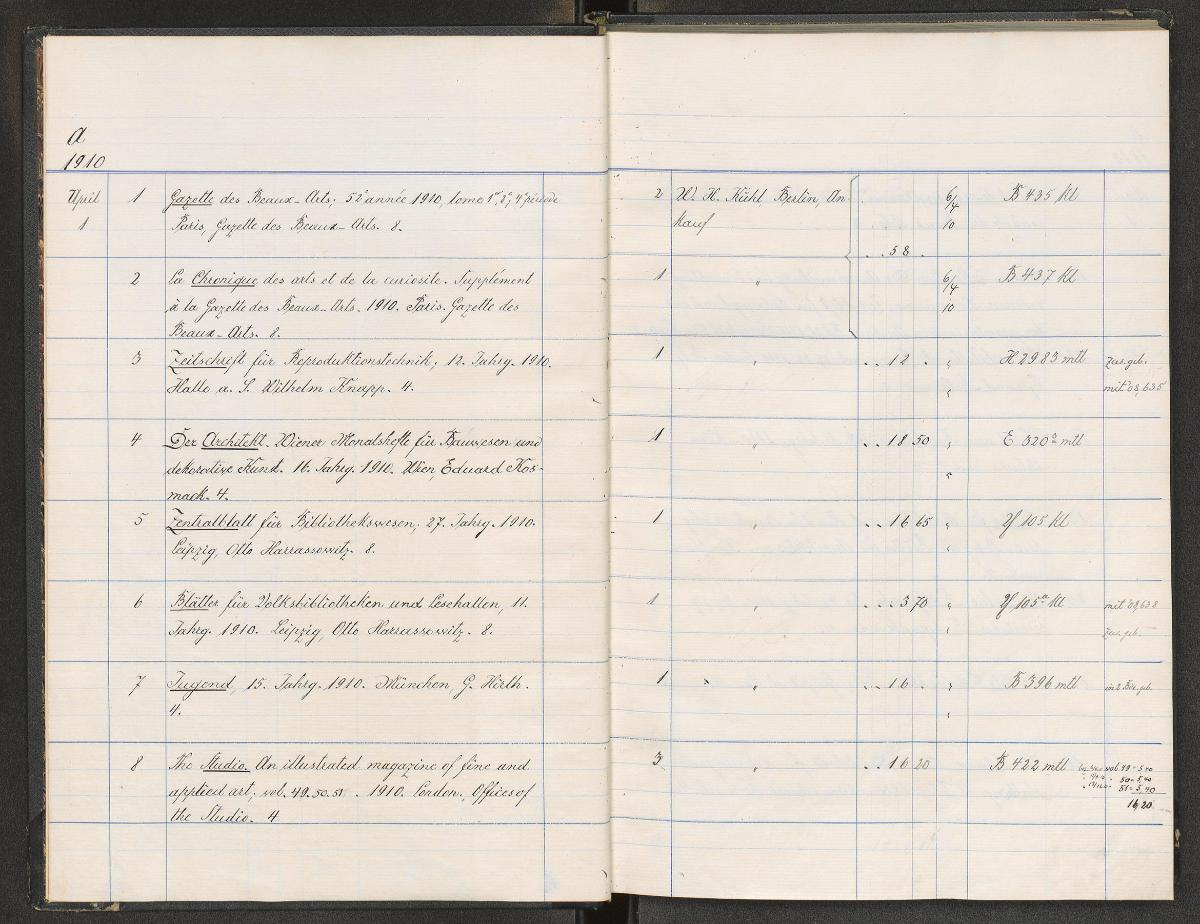 a
1910
April 1 Gazette des Beaux-Arts; 52e année 1910, tome 1er, 2e; 4e période 2 W. H. Kühl Berlin, An- 6/ B 435 kl
1 Paris, Gazette des Beaux-Arts. 8. kauf 4/ 10
. . 58 .
2 La Chronique des arts et de la curiosite. Supplément 1 " 6/ B 437 kl
à la Gazette des Beaux-Arts. 1910. Paris. Gazette des 4/ 10
Beaux-Arts. 8.
3 Zeitschrift für Reproduktionstechnik, 12. Jahrg. 1910. 1 " . . 12 . " H 2983 mtl zus. geb.
Halle a. S. Wilhelm Knapp. 4. " mit 08,635
4 Der Architekt. Wiener Monatshefte für Bauwesen und 1 " . . 18 50 " E 320a mtl
dekorative Kunst. 16. Jahrg. 1910. Wien, Eduard Kos- "
mack. 4.
5 Zentralblatt für Bibliothekswesen; 27. Jahrg. 1910. 1 " . . 16 65 " 105 kl
Leipzig, Otto Harrassowitz. 8. "
6 Blätter für Volksbibliotheken und Lesehallen, 11. 1 " . . . 3 70 " 105a kl mit 08,638
Jahrg. 1910. Leipzig, Otto Harrassowitz. 8. " zus. geb.
7 Jugend, 15. Jahrg. 1910. München, G. Hirth. 1 " . . 16 . " B 396 mtl in 2 Bde. geb.
4. "
8 The Studio. An illustrated magazine of fine and 3 " . . 16 20 B 422 mtl vol. 49 = 5,40
applied art; vol. 49. 50. 51. 1910. London, Offices of 50 = 5,40
the Studio. 4 51 = 5,40
16,20